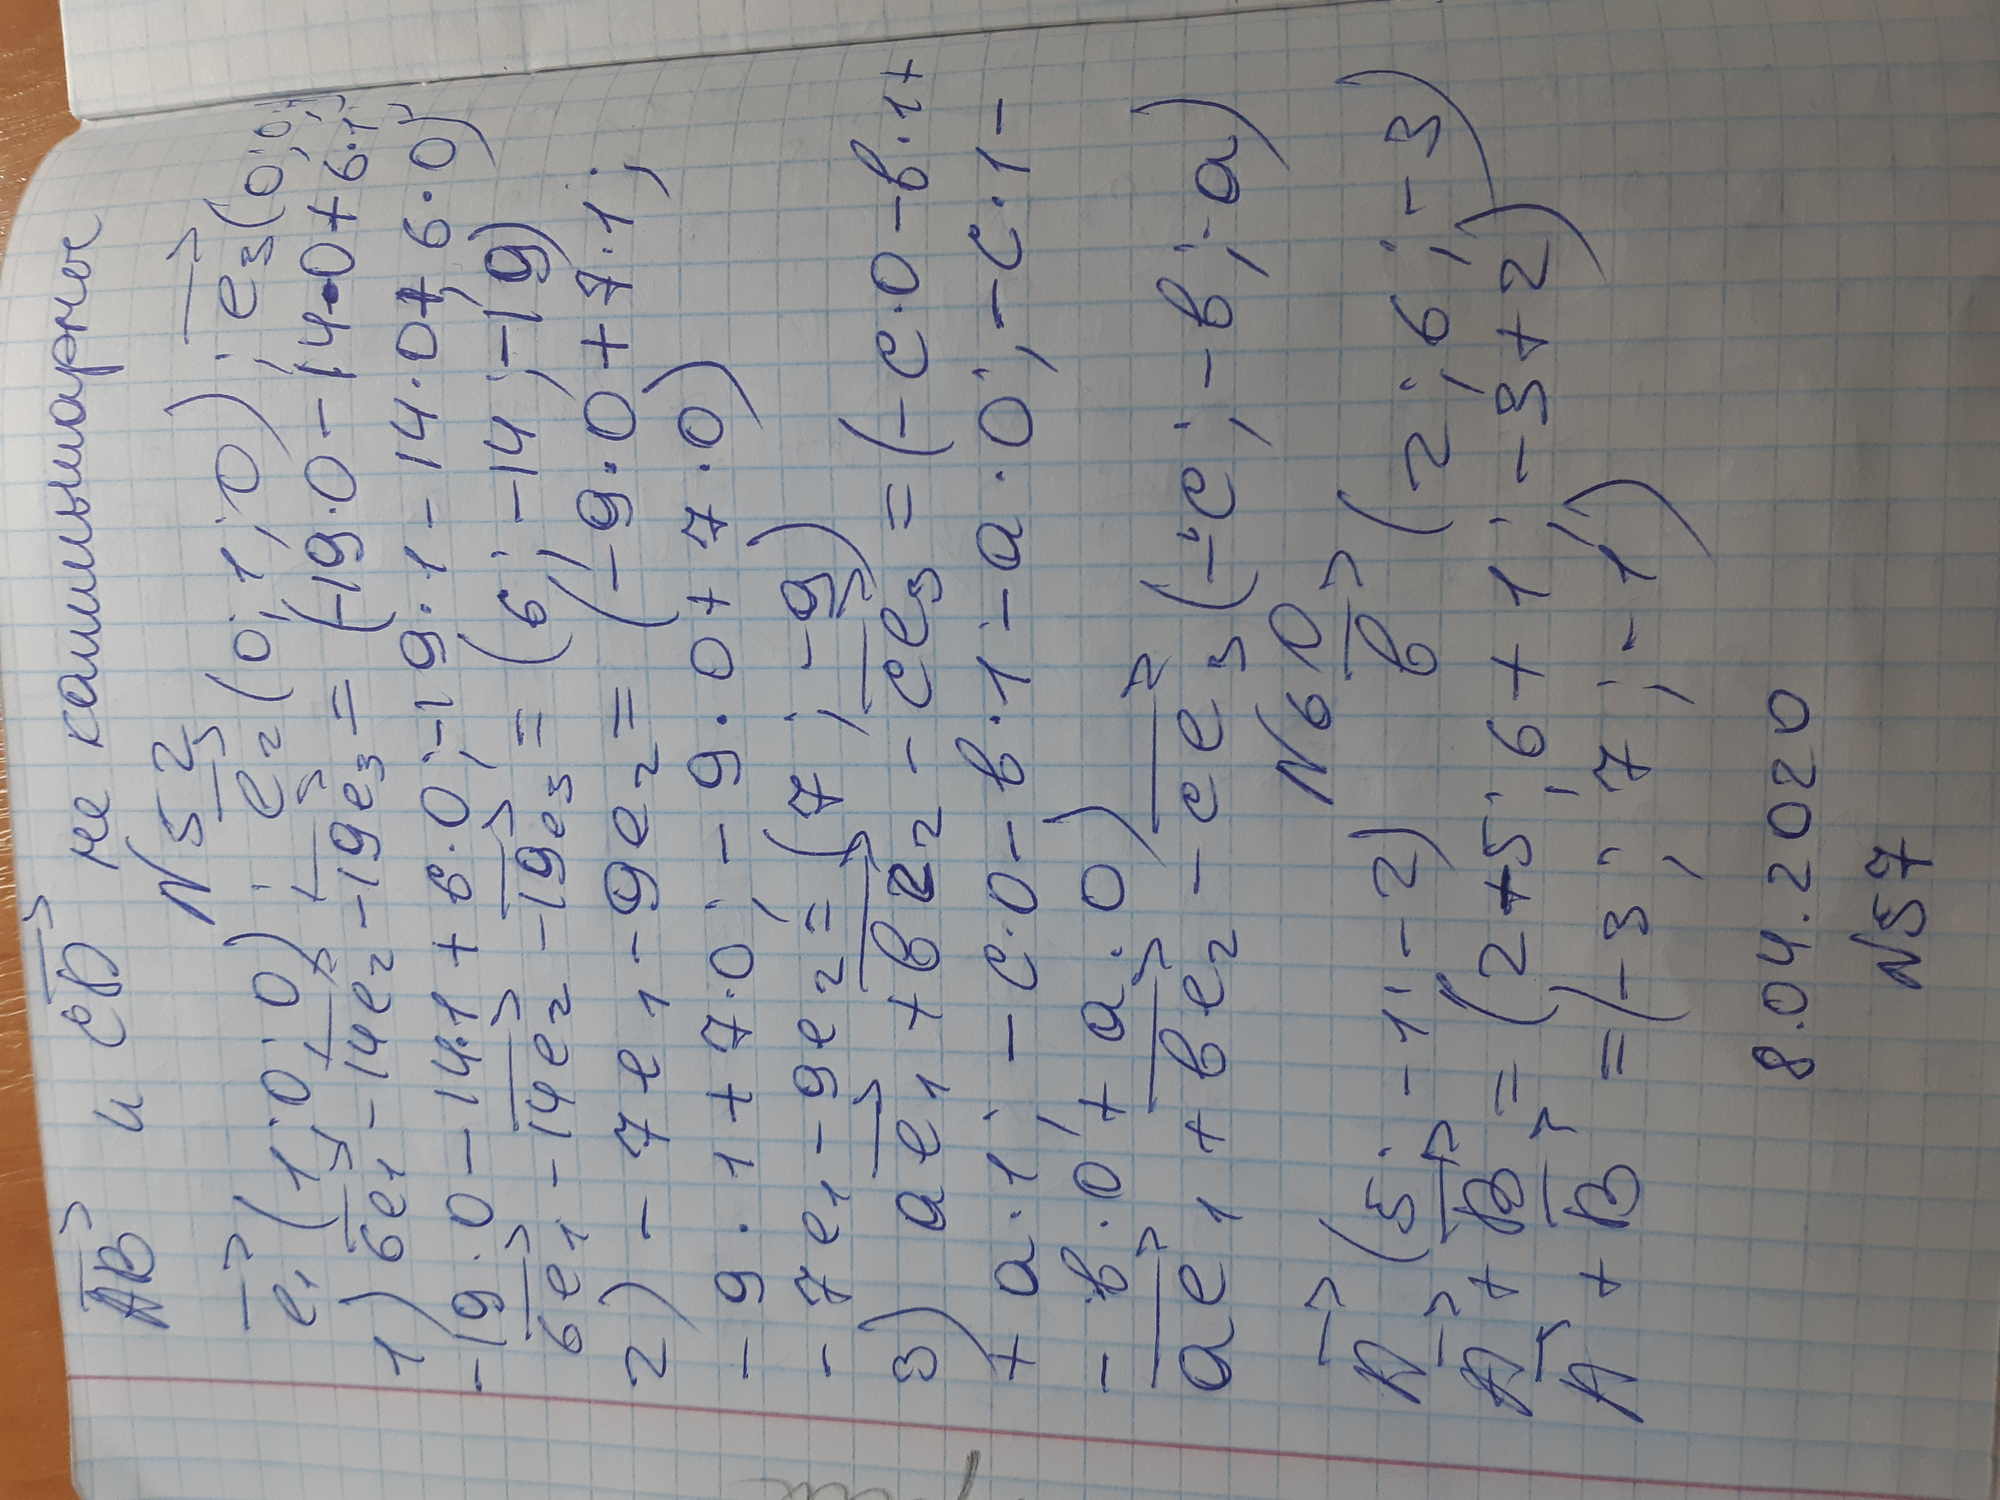 AB и CD не коллинеарные
N 52
e₁ (1; 0; 0); e₂ (0; 1; 0); e₃ (0; 0;
1) 6e₁ - 14e₂ - 19e₃ = (-19·0 - 14·0 + 6·1;
-19·0 - 14·1 + 6·0; -19·1 - 14·0 + 6·0)
6e₁ - 14e₂ - 19e₃ = (6; -14; -19)
2) - 7e₁ - 9e₂ = (-9·0 + 7·1;
- 9·1 + 7·0; - 9·0 + 7·0)
- 7e₁ - 9e₂ = (7; -9)
3) ae₁ + be₂ - ce₃ = (-c·0 - b·1 +
+ a·1; - c·0 - b·1 - a·0; - c·1 -
- b·0 + a·0)
ae₁ + be₂ - ce₃ (-c; -b; a)
N 610
A (5; -1; -2) b (2; 6; -3)
A + B = (2+5; 6+1; -3+2)
A + B = (-3; 7; -1)
8.04.2020
N57